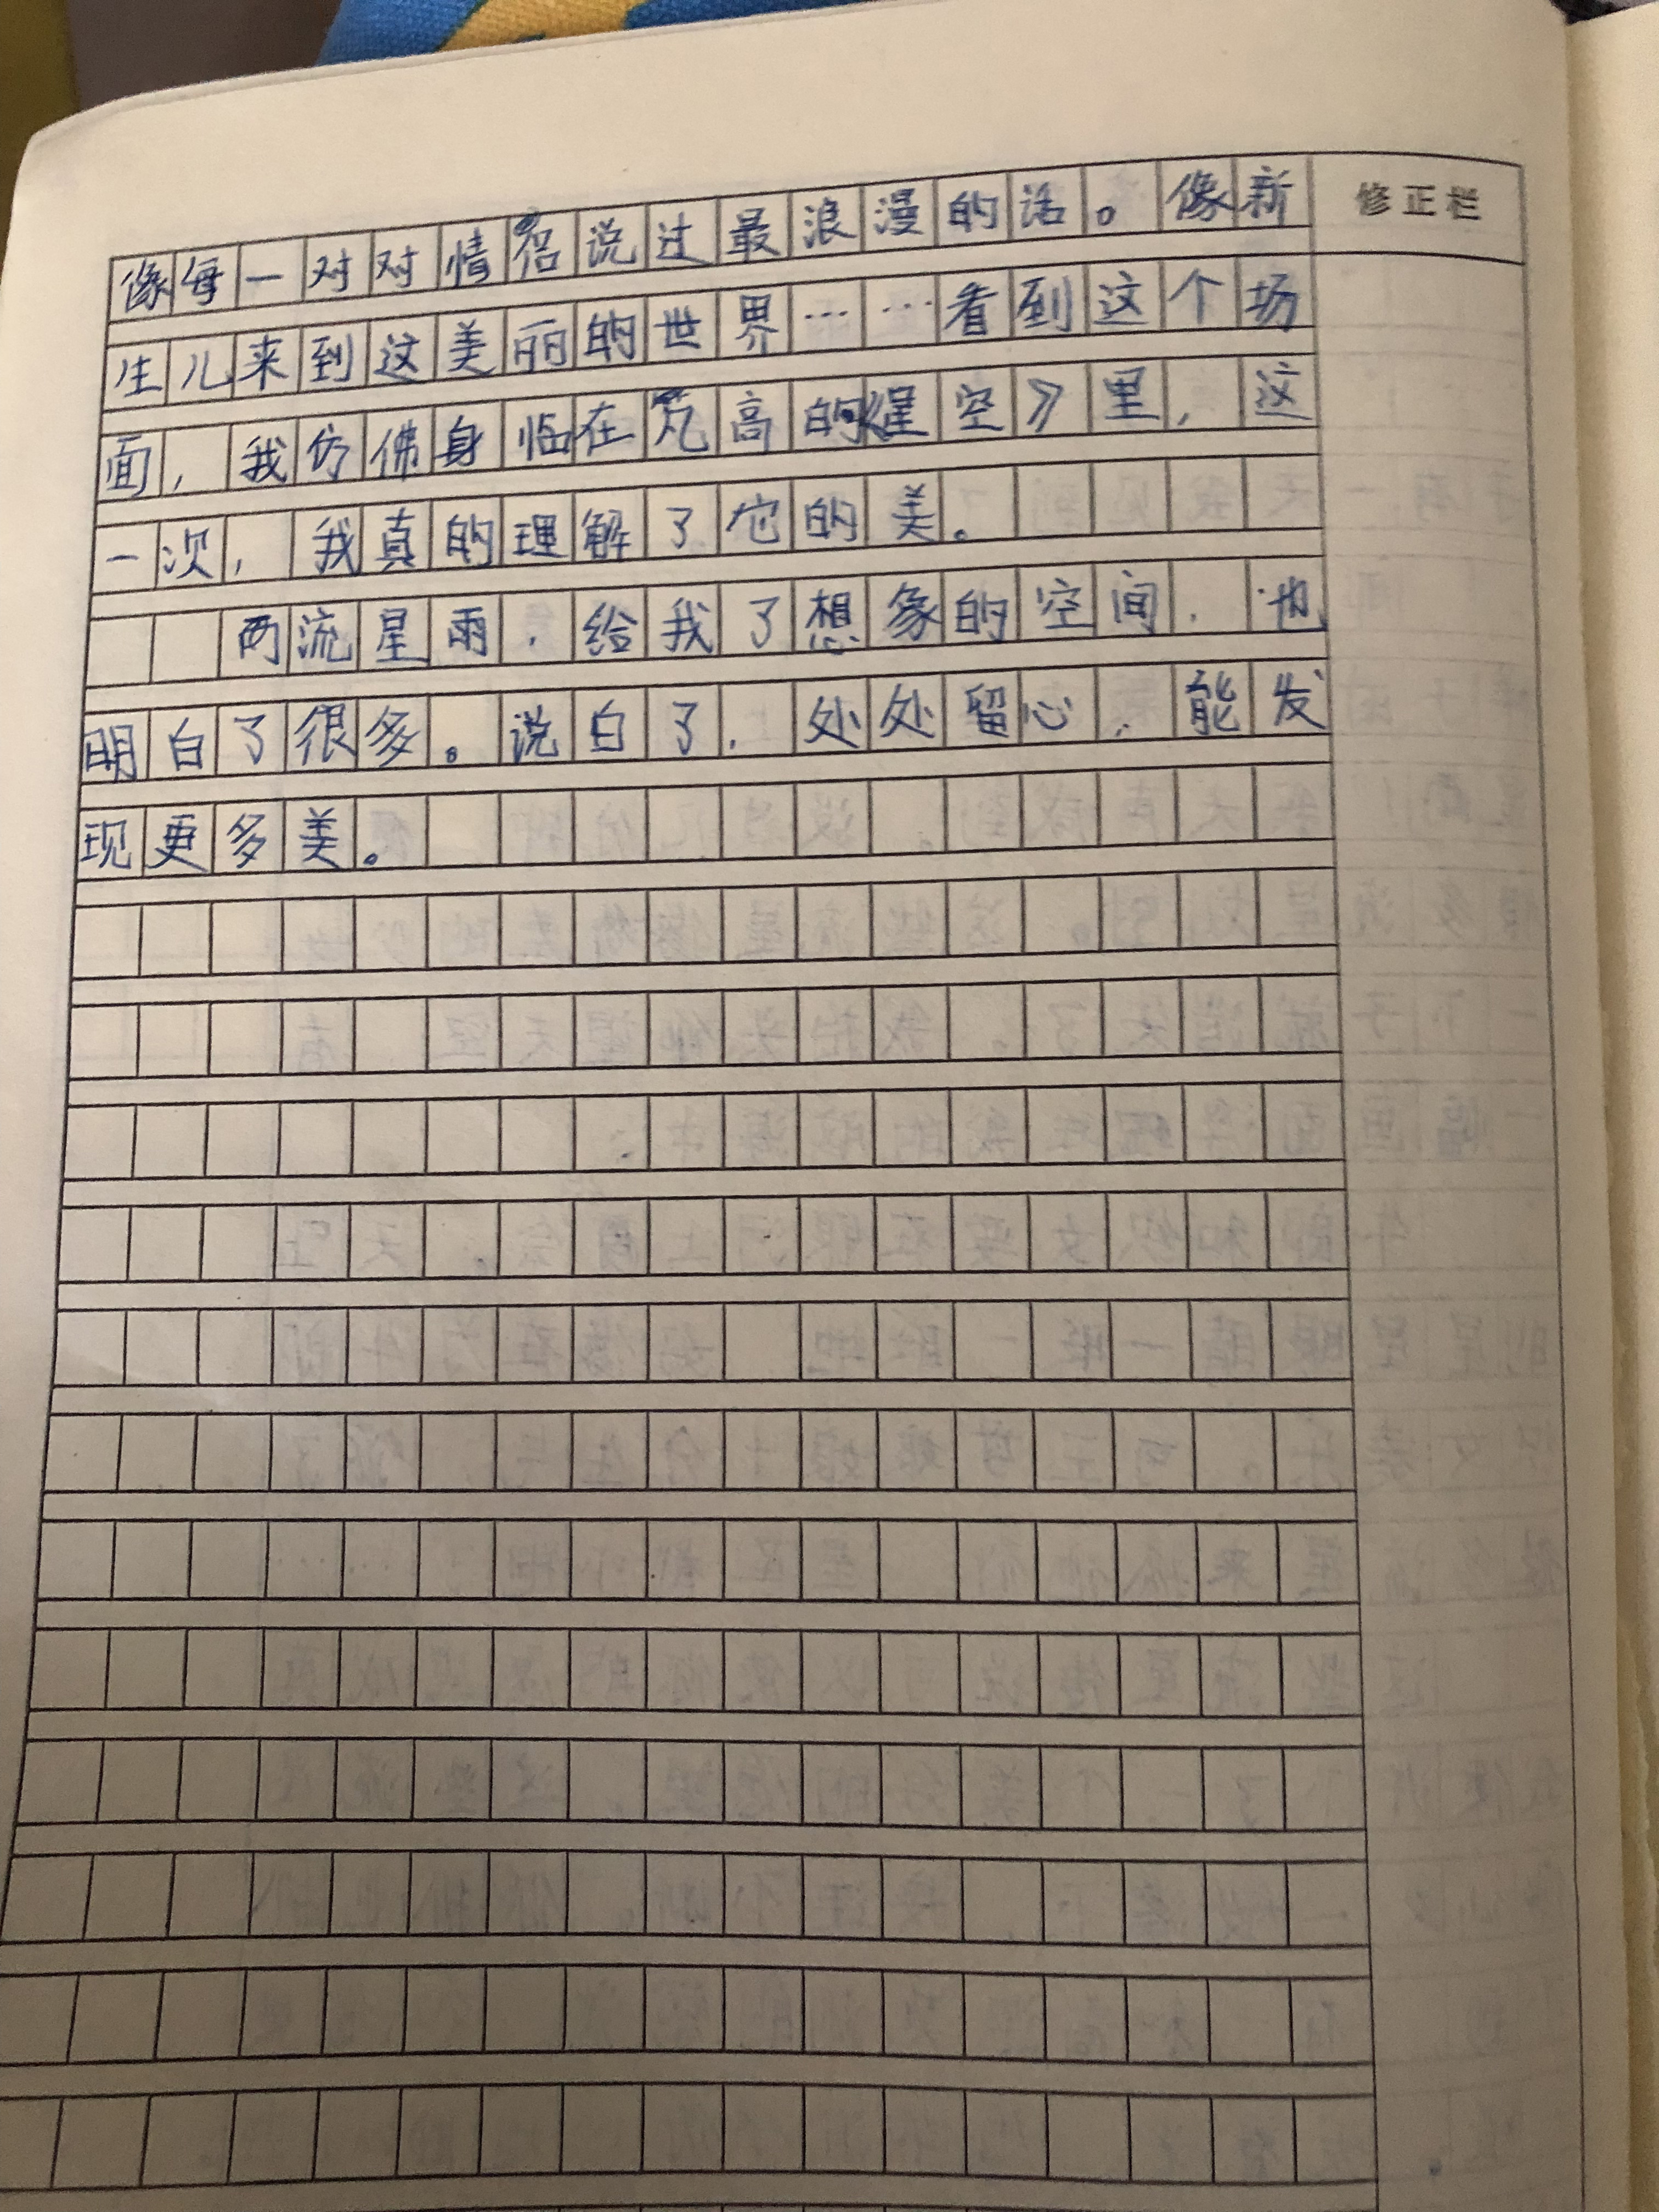 修正栏
像每一对对情侣说过最浪漫的话。像新
生儿来到这美丽的世界……看到这个场
面，我仿佛身临在梵高的《星空》里，这
一次，我真的理解了它的美。
两流星雨，给我了想象的空间，也
明白了很多。说白了，处处留心，能发
现更多美。